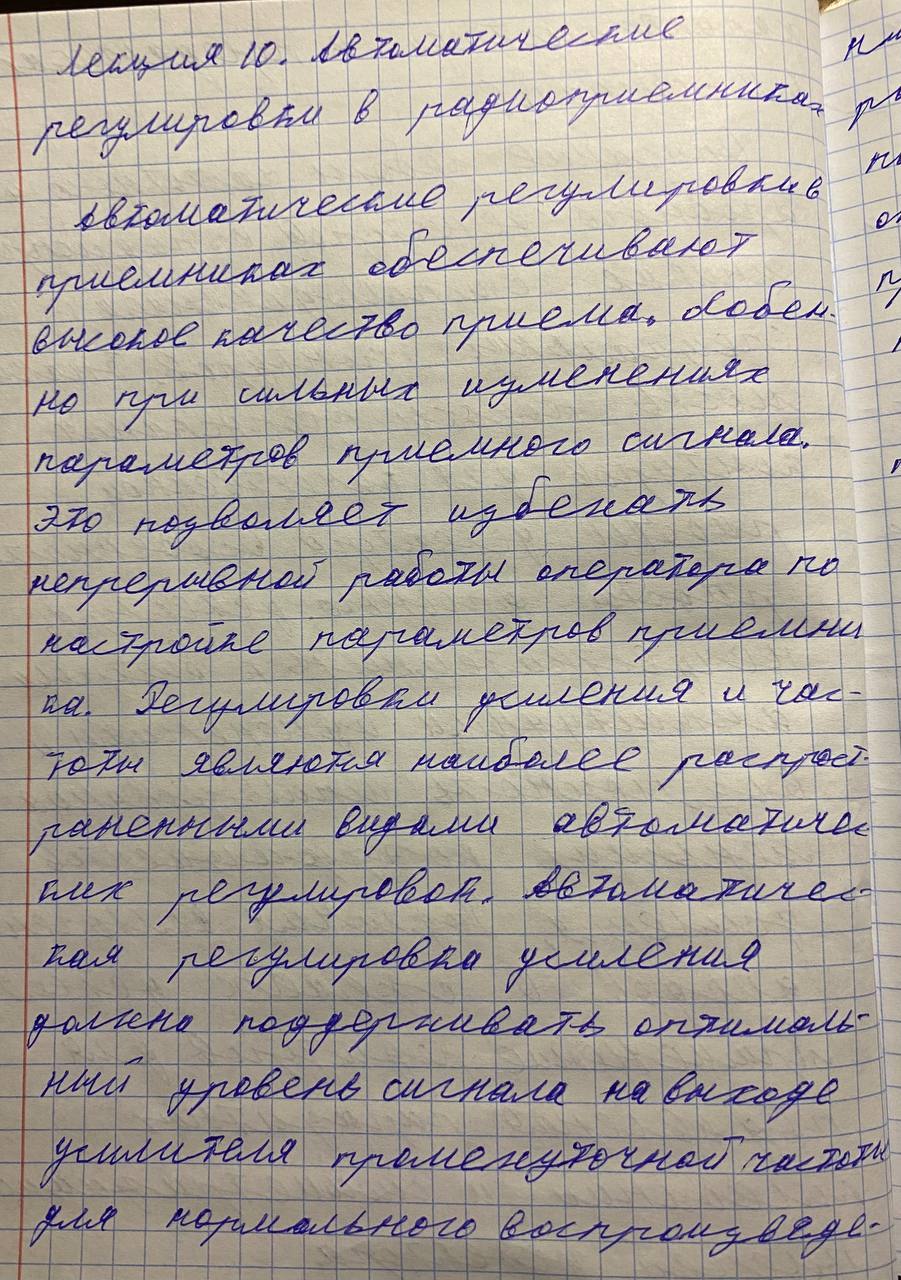 Лекция 10. Автоматические
регулировки в радиоприемниках
Автоматические регулировки в
приемниках обеспечивают
высокое качество приема. Особен-
но при сильных изменениях
параметров приемного сигнала.
Это позволяет избежать
непрерывной работы оператора по
настройке параметров приемни
ка. Регулировки усиления и час-
тоты являются наиболее распрост-
раненными видами автоматичес
ких регулировок. Автоматичес-
кая регулировка усиления
должна поддерживать оптималь-
ный уровень сигнала на выходе
усилителя промежуточной частоты
для нормального воспроизведе-